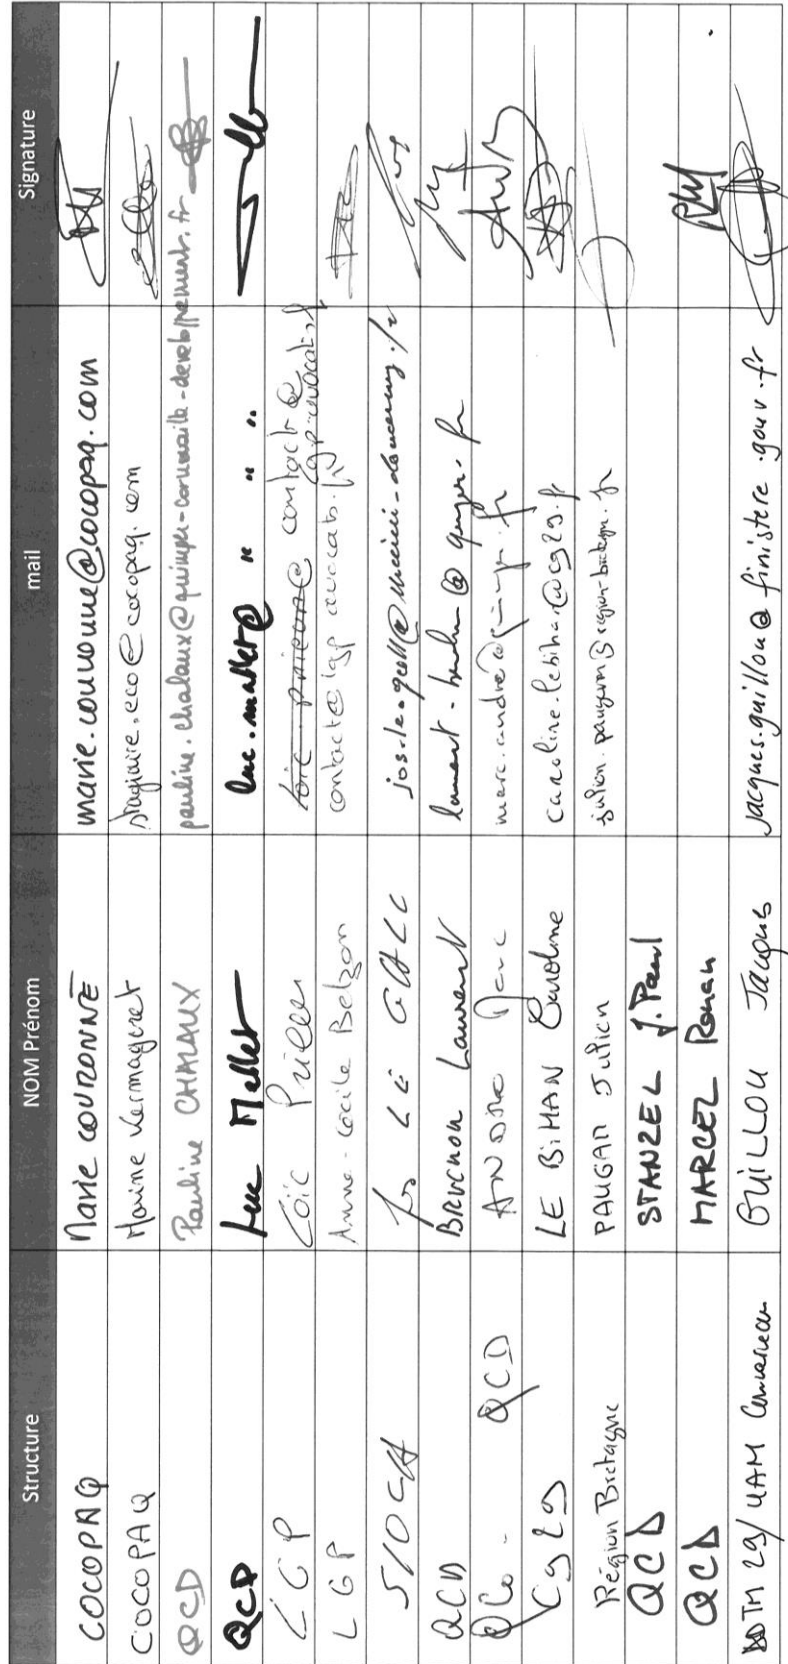 Structure NOM Prénom mail Signature
COCOPAQ Marie COURONNÉ marie.couronne@cocopaq.com
COCOPAQ Marine Kermagoret stagiaire.eco@cocopaq.com
QCD Pauline CHALAUX pauline.chalaux@quimper-cornouaille-developpement.fr
QCD Luc Mallet luc.mallet@ " " "
LGP Loïc Prieur contact@
lgp.avocats.fr
LGP Anne-Cécile Belzon contact@lgp.avocats.fr
SIOCA Jos LE GALL
QCD BRUCHON Laurent
QCD ANDRE Marc marc.andre@quimper.fr
Cg29 LE BIHAN Caroline caroline.lebihan@cg29.fr
Région Bretagne PAUGAM Julien julien.paugam@region-bretagne.fr
QCD STANZEL J. Paul
QCD MARCEL Ronan
DDTM 29/UAM Concarneau GUILLOU Jacques jacques.guillou@finistere.gouv.fr